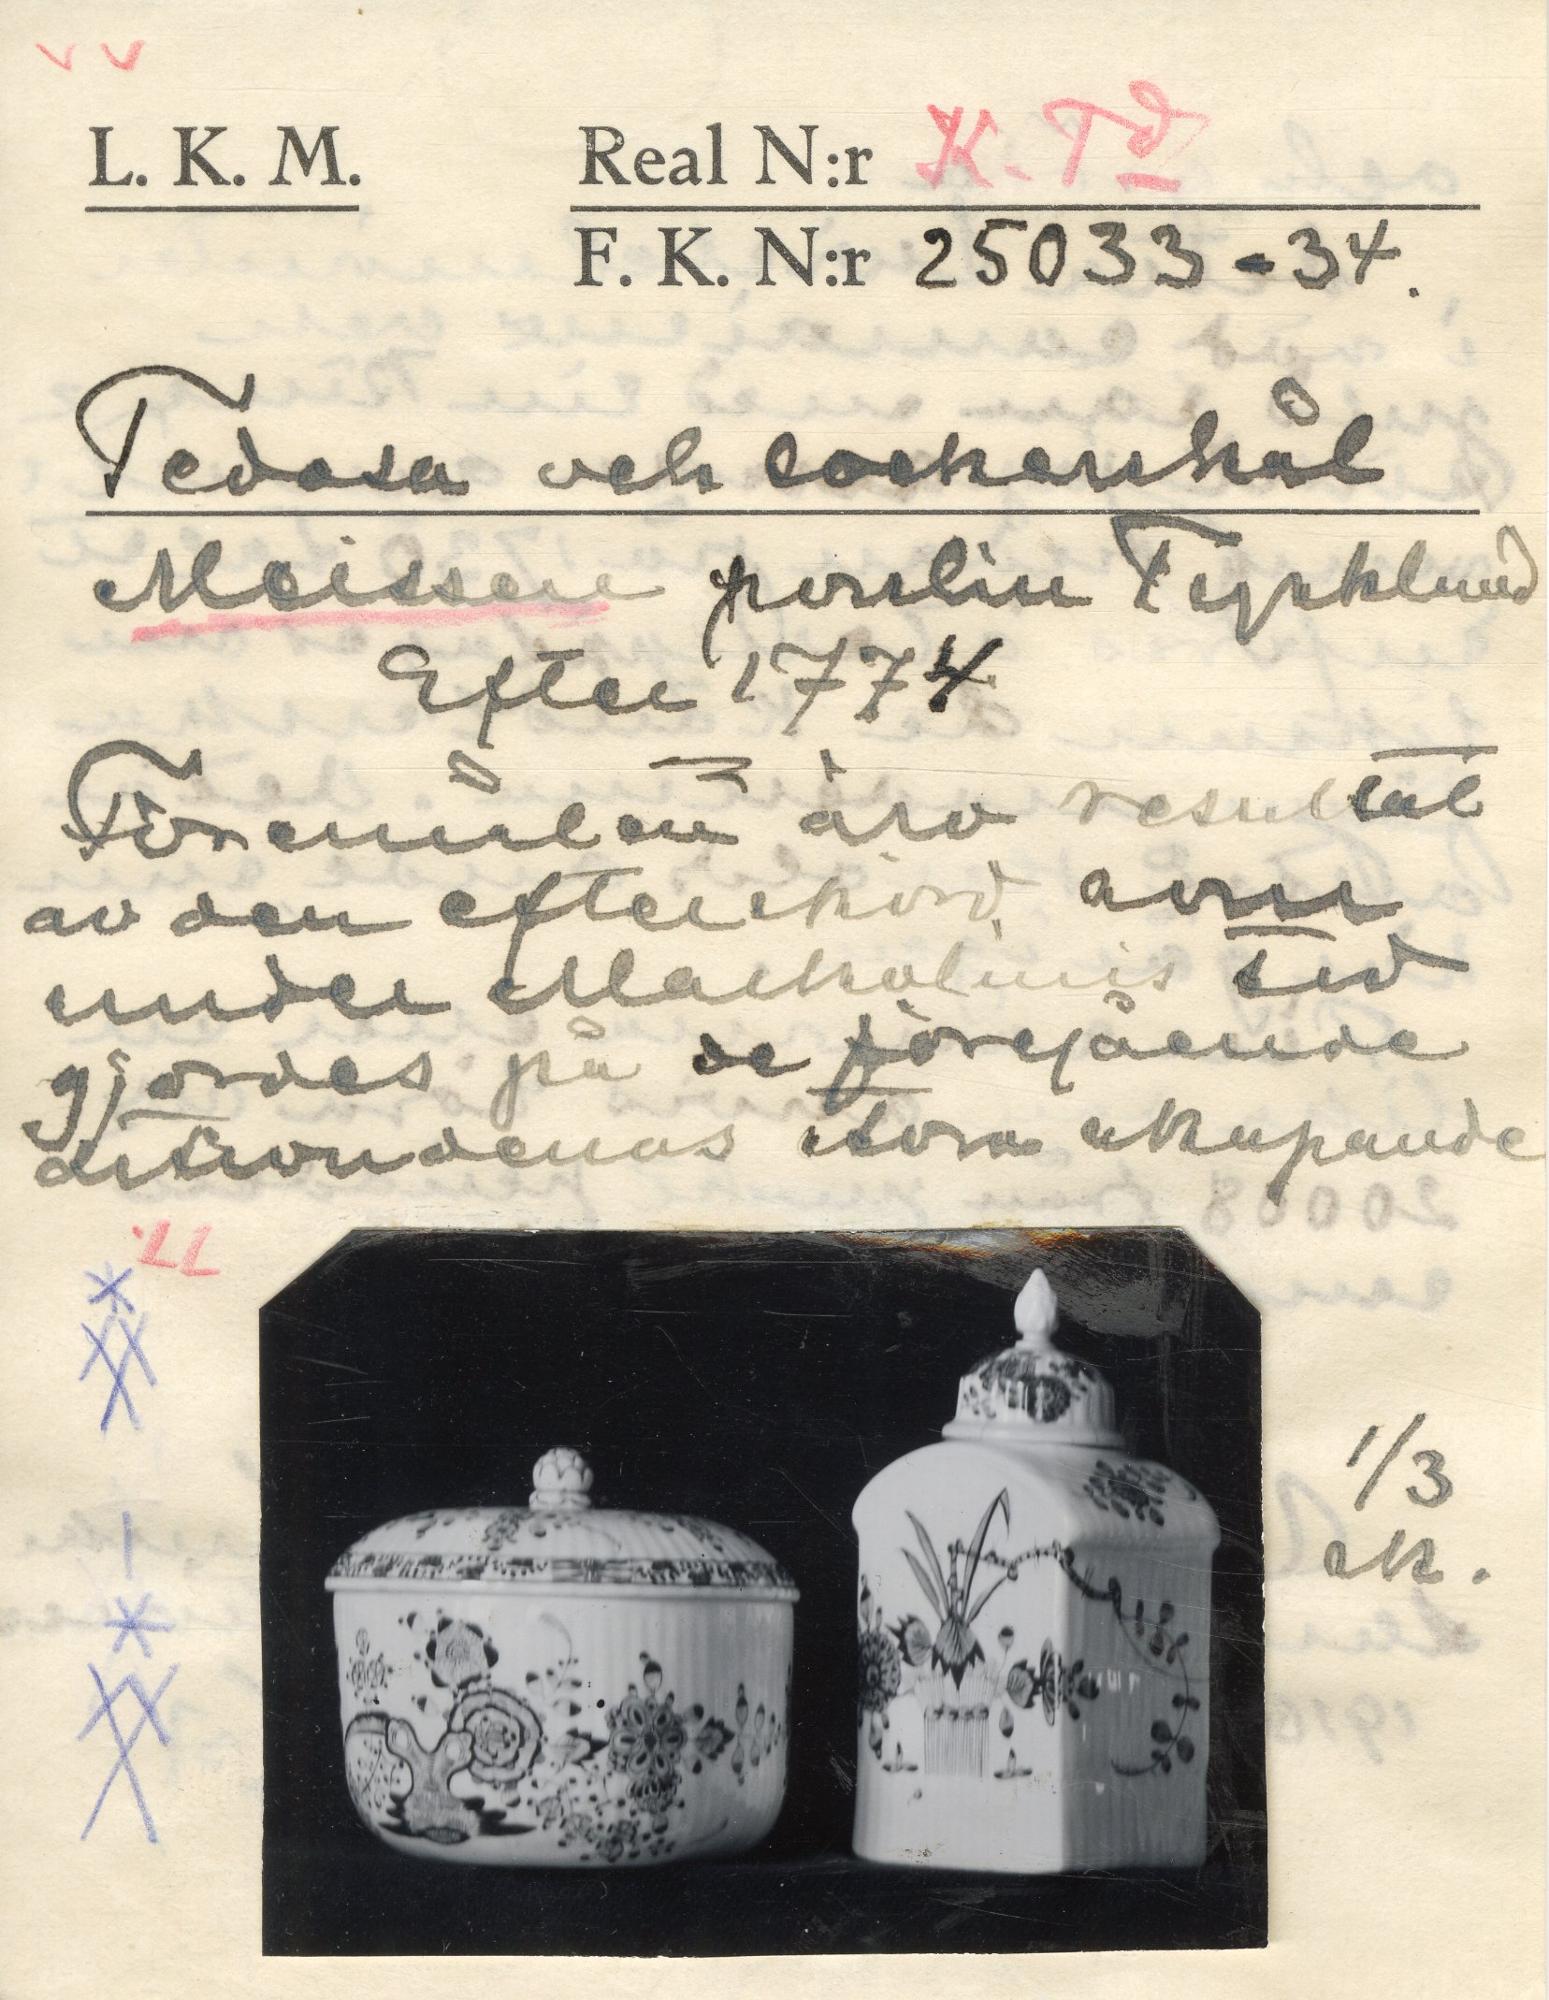 L. K. M.
Real N:r K-Td
F. K. N:r 25033-34.
Tedosa och sockerskål
Meissen porslin Tyskland
Efter 1774
Föremålen äro resultat
av den efterskörd, som
under Markolinis tid
gjordes på de föregående
artiondenas stora skapande
1/3
sk.